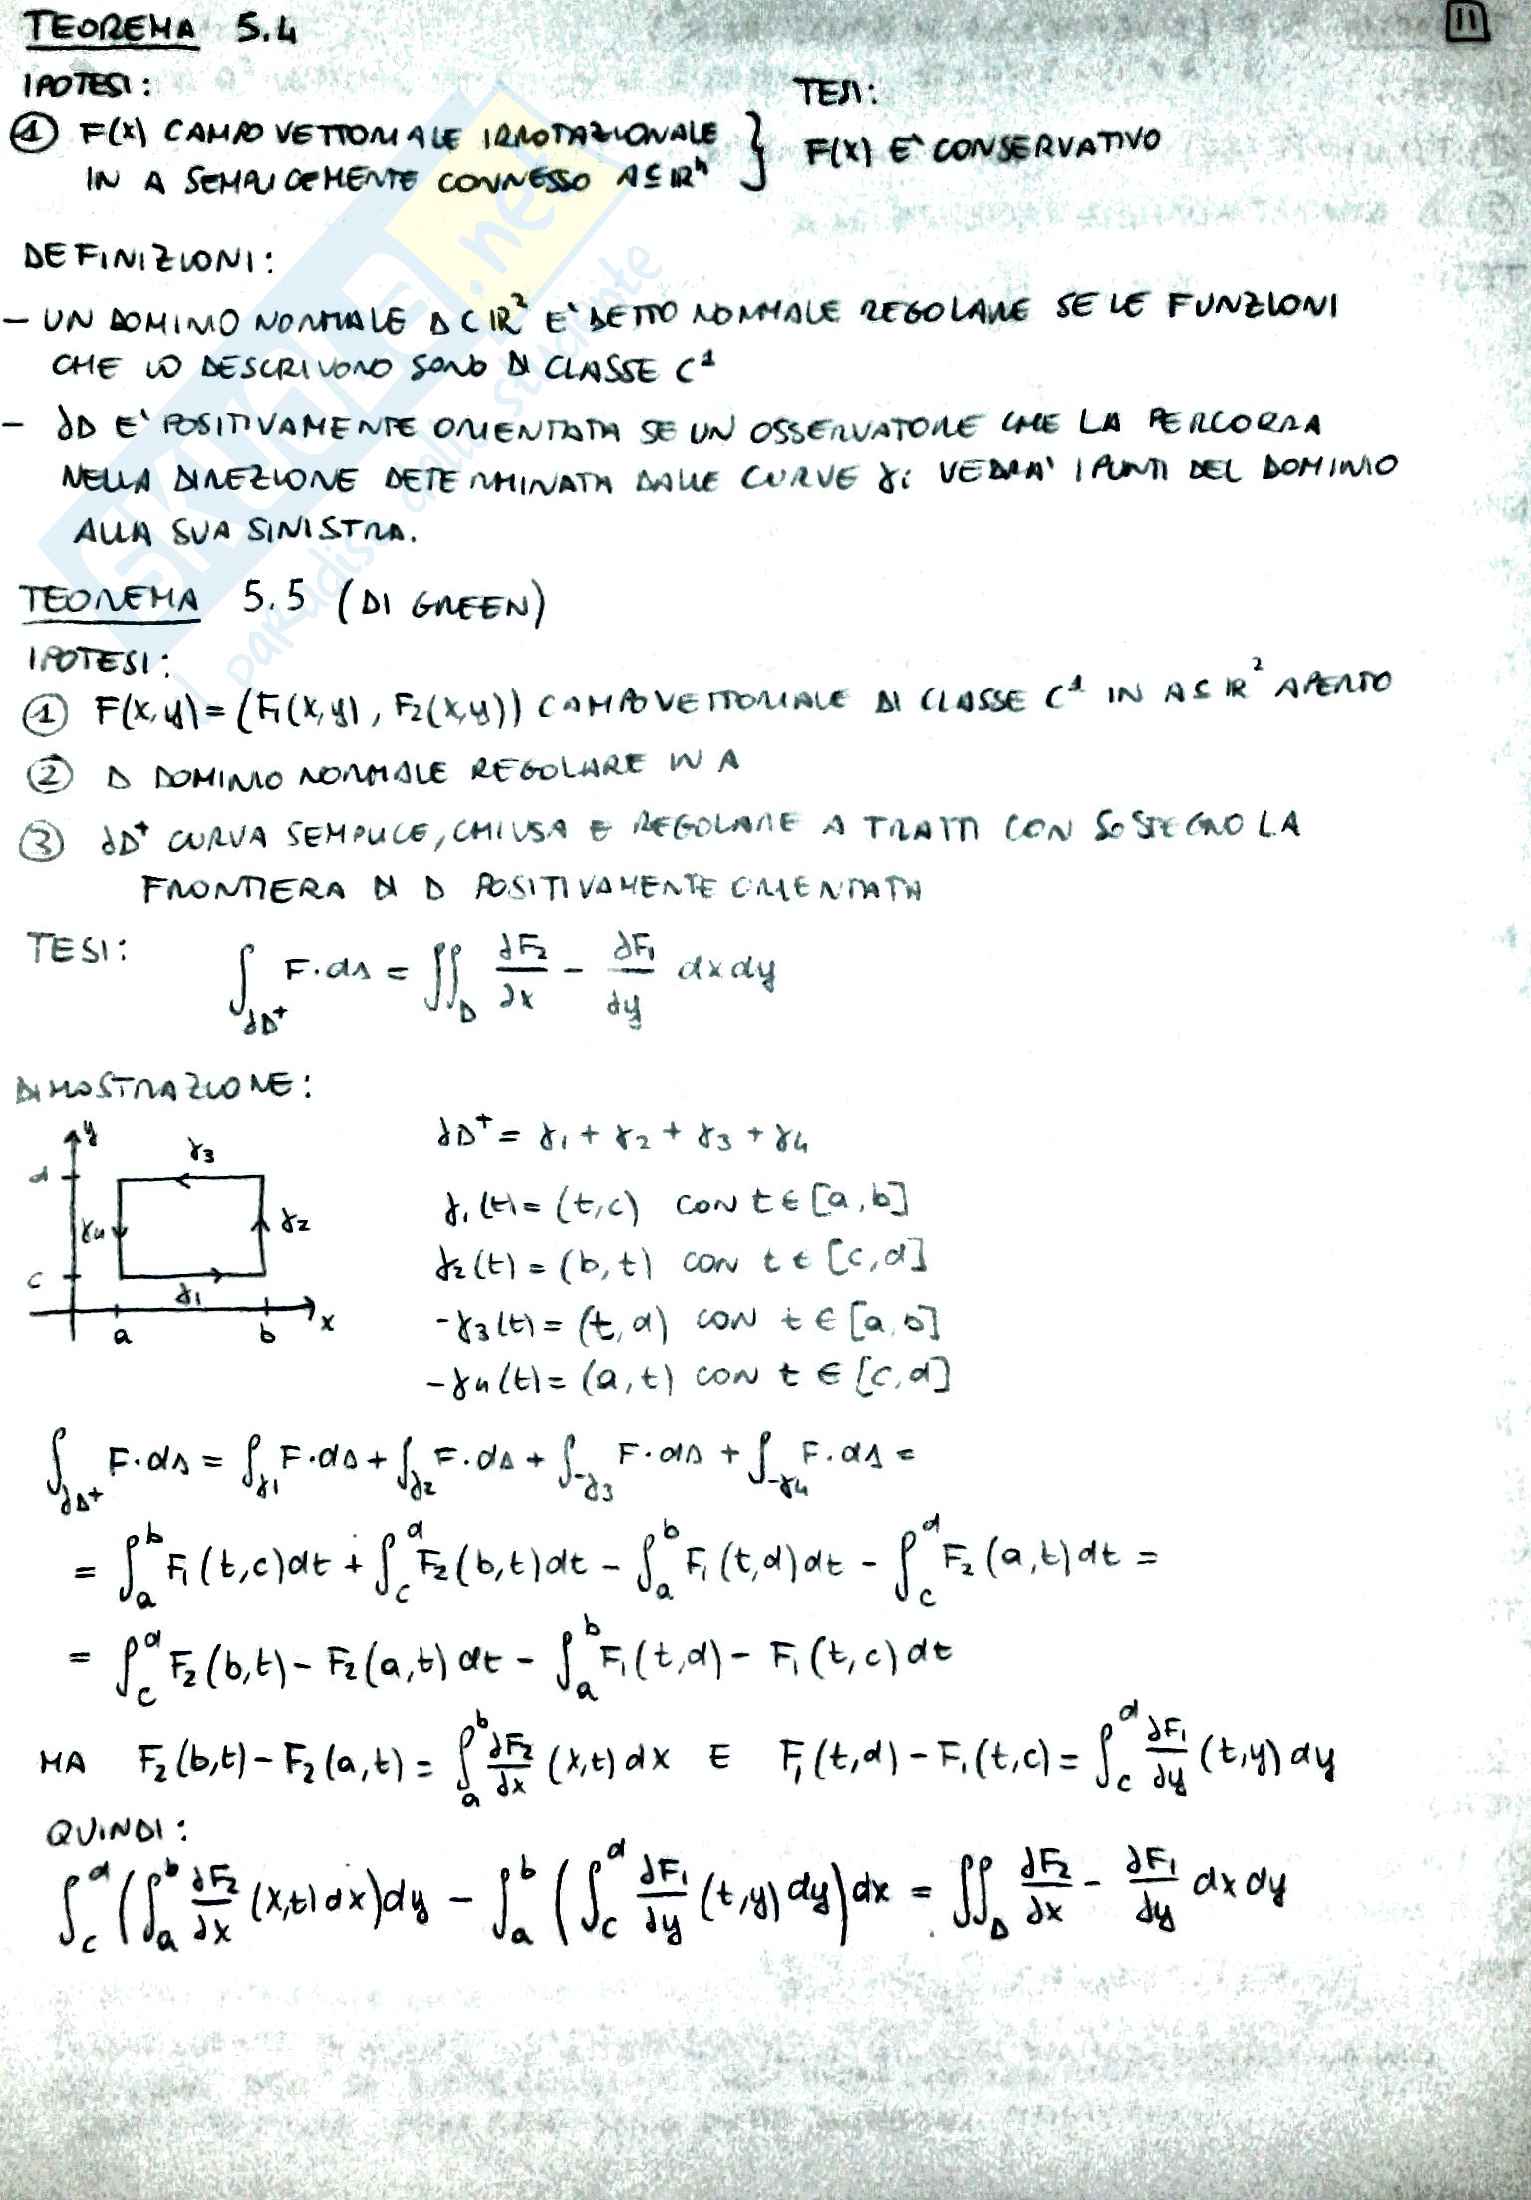 TEOREMA 5.4
11
IPOTESI:
TESI:
① F(x) CAMPO VETTORIALE IRROTAZIONALE
IN A SEMPLICEMENTE CONNESSO A⊆ℝⁿ
F(x) E' CONSERVATIVO
DEFINIZIONI:
- UN DOMINIO NORMALE D⊂ℝ² E' DETTO NORMALE REGOLARE SE LE FUNZIONI
CHE LO DESCRIVONO SONO DI CLASSE C¹
- ∂D E' POSITIVAMENTE ORIENTATA SE UN OSSERVATORE CHE LA PERCORRA
NELLA DIREZIONE DETERMINATA DALLE CURVE γi VEDRA' I PUNTI DEL DOMINIO
ALLA SUA SINISTRA.
TEOREMA 5.5 (DI GREEN)
IPOTESI:
① F(x,y)=(F₁(x,y), F₂(x,y)) CAMPO VETTORIALE DI CLASSE C¹ IN A⊆ℝ² APERTO
② D DOMINIO NORMALE REGOLARE IN A
③ ∂D⁺ CURVA SEMPLICE, CHIUSA E REGOLARE A TRATTI CON SOSTEGNO LA
FRONTIERA DI D POSITIVAMENTE ORIENTATA
TESI: ∫_∂D⁺ F·ds = ∬_D ∂F₂/∂x - ∂F₁/∂y dxdy
DIMOSTRAZIONE:
y
γ3
d
γ4
γ2
c
γ1
a
b
x
∂D⁺ = γ1 + γ2 + γ3 + γ4
γ1(t) = (t,c) CON t∈[a,b]
γ2(t) = (b,t) CON t∈[c,d]
-γ3(t) = (t,d) CON t∈[a,b]
-γ4(t) = (a,t) CON t∈[c,d]
∫_∂D⁺ F·ds = ∫_γ1 F·ds + ∫_γ2 F·ds + ∫_-γ3 F·ds + ∫_-γ4 F·ds =
= ∫_a^b F₁(t,c)dt + ∫_c^d F₂(b,t)dt - ∫_a^b F₁(t,d)dt - ∫_c^d F₂(a,t)dt =
= ∫_c^d F₂(b,t) - F₂(a,t) dt - ∫_a^b F₁(t,d) - F₁(t,c) dt
MA F₂(b,t) - F₂(a,t) = ∫_a^b ∂F₂/∂x (x,t) dx E F₁(t,d) - F₁(t,c) = ∫_c^d ∂F₁/∂y (t,y) dy
QUINDI:
∫_c^d (∫_a^b ∂F₂/∂x (x,t) dx)dy - ∫_a^b (∫_c^d ∂F₁/∂y (t,y) dy)dx = ∬_D ∂F₂/∂x - ∂F₁/∂y dxdy
SKUOLA.net
il paradiso dello studente